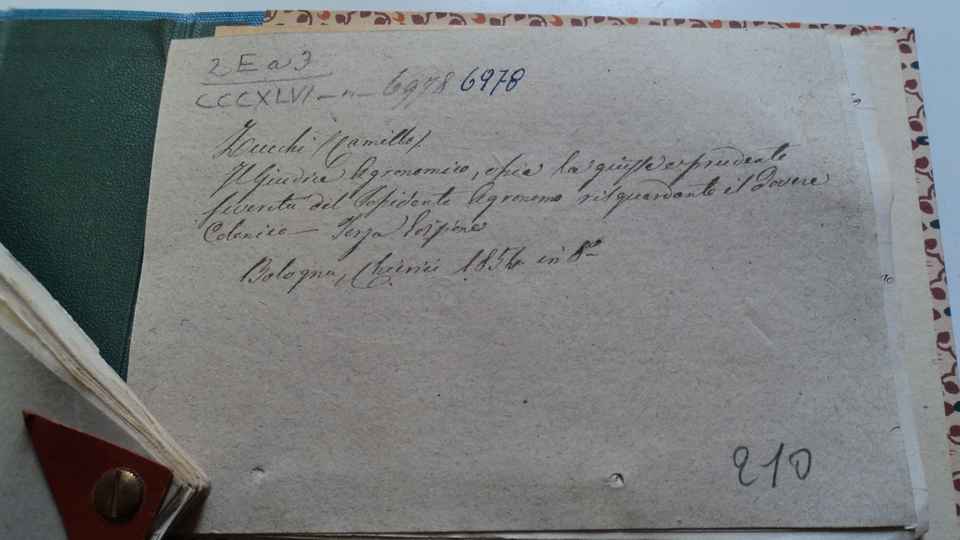 2 E a 3
CCCXLVI – n – 6978 6978
Zucchi (Camillo)
Il Giudice Agronomico, ossia la giusta e prudente
severità del Possidente Agronomo risguardante il dovere
Colonico – Terza Edizione
Bologna, Chierici 1854 in 8°
210